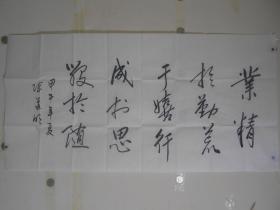 業精
於勤荒
于嬉行
成於思
毀於随
甲午年夏